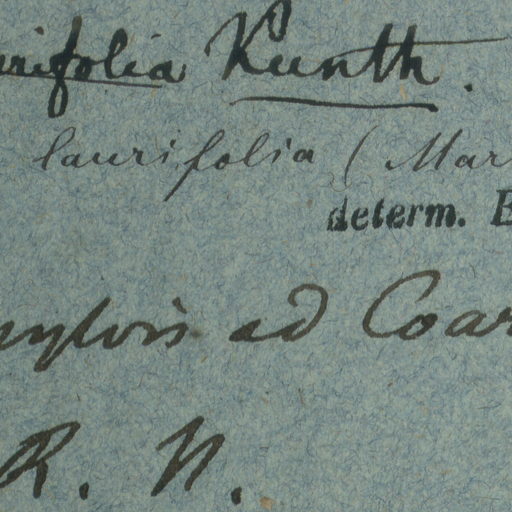 urifolia Kunth.
laurifolia (Mar
determ. E
sylvis ad Coar
R. N.